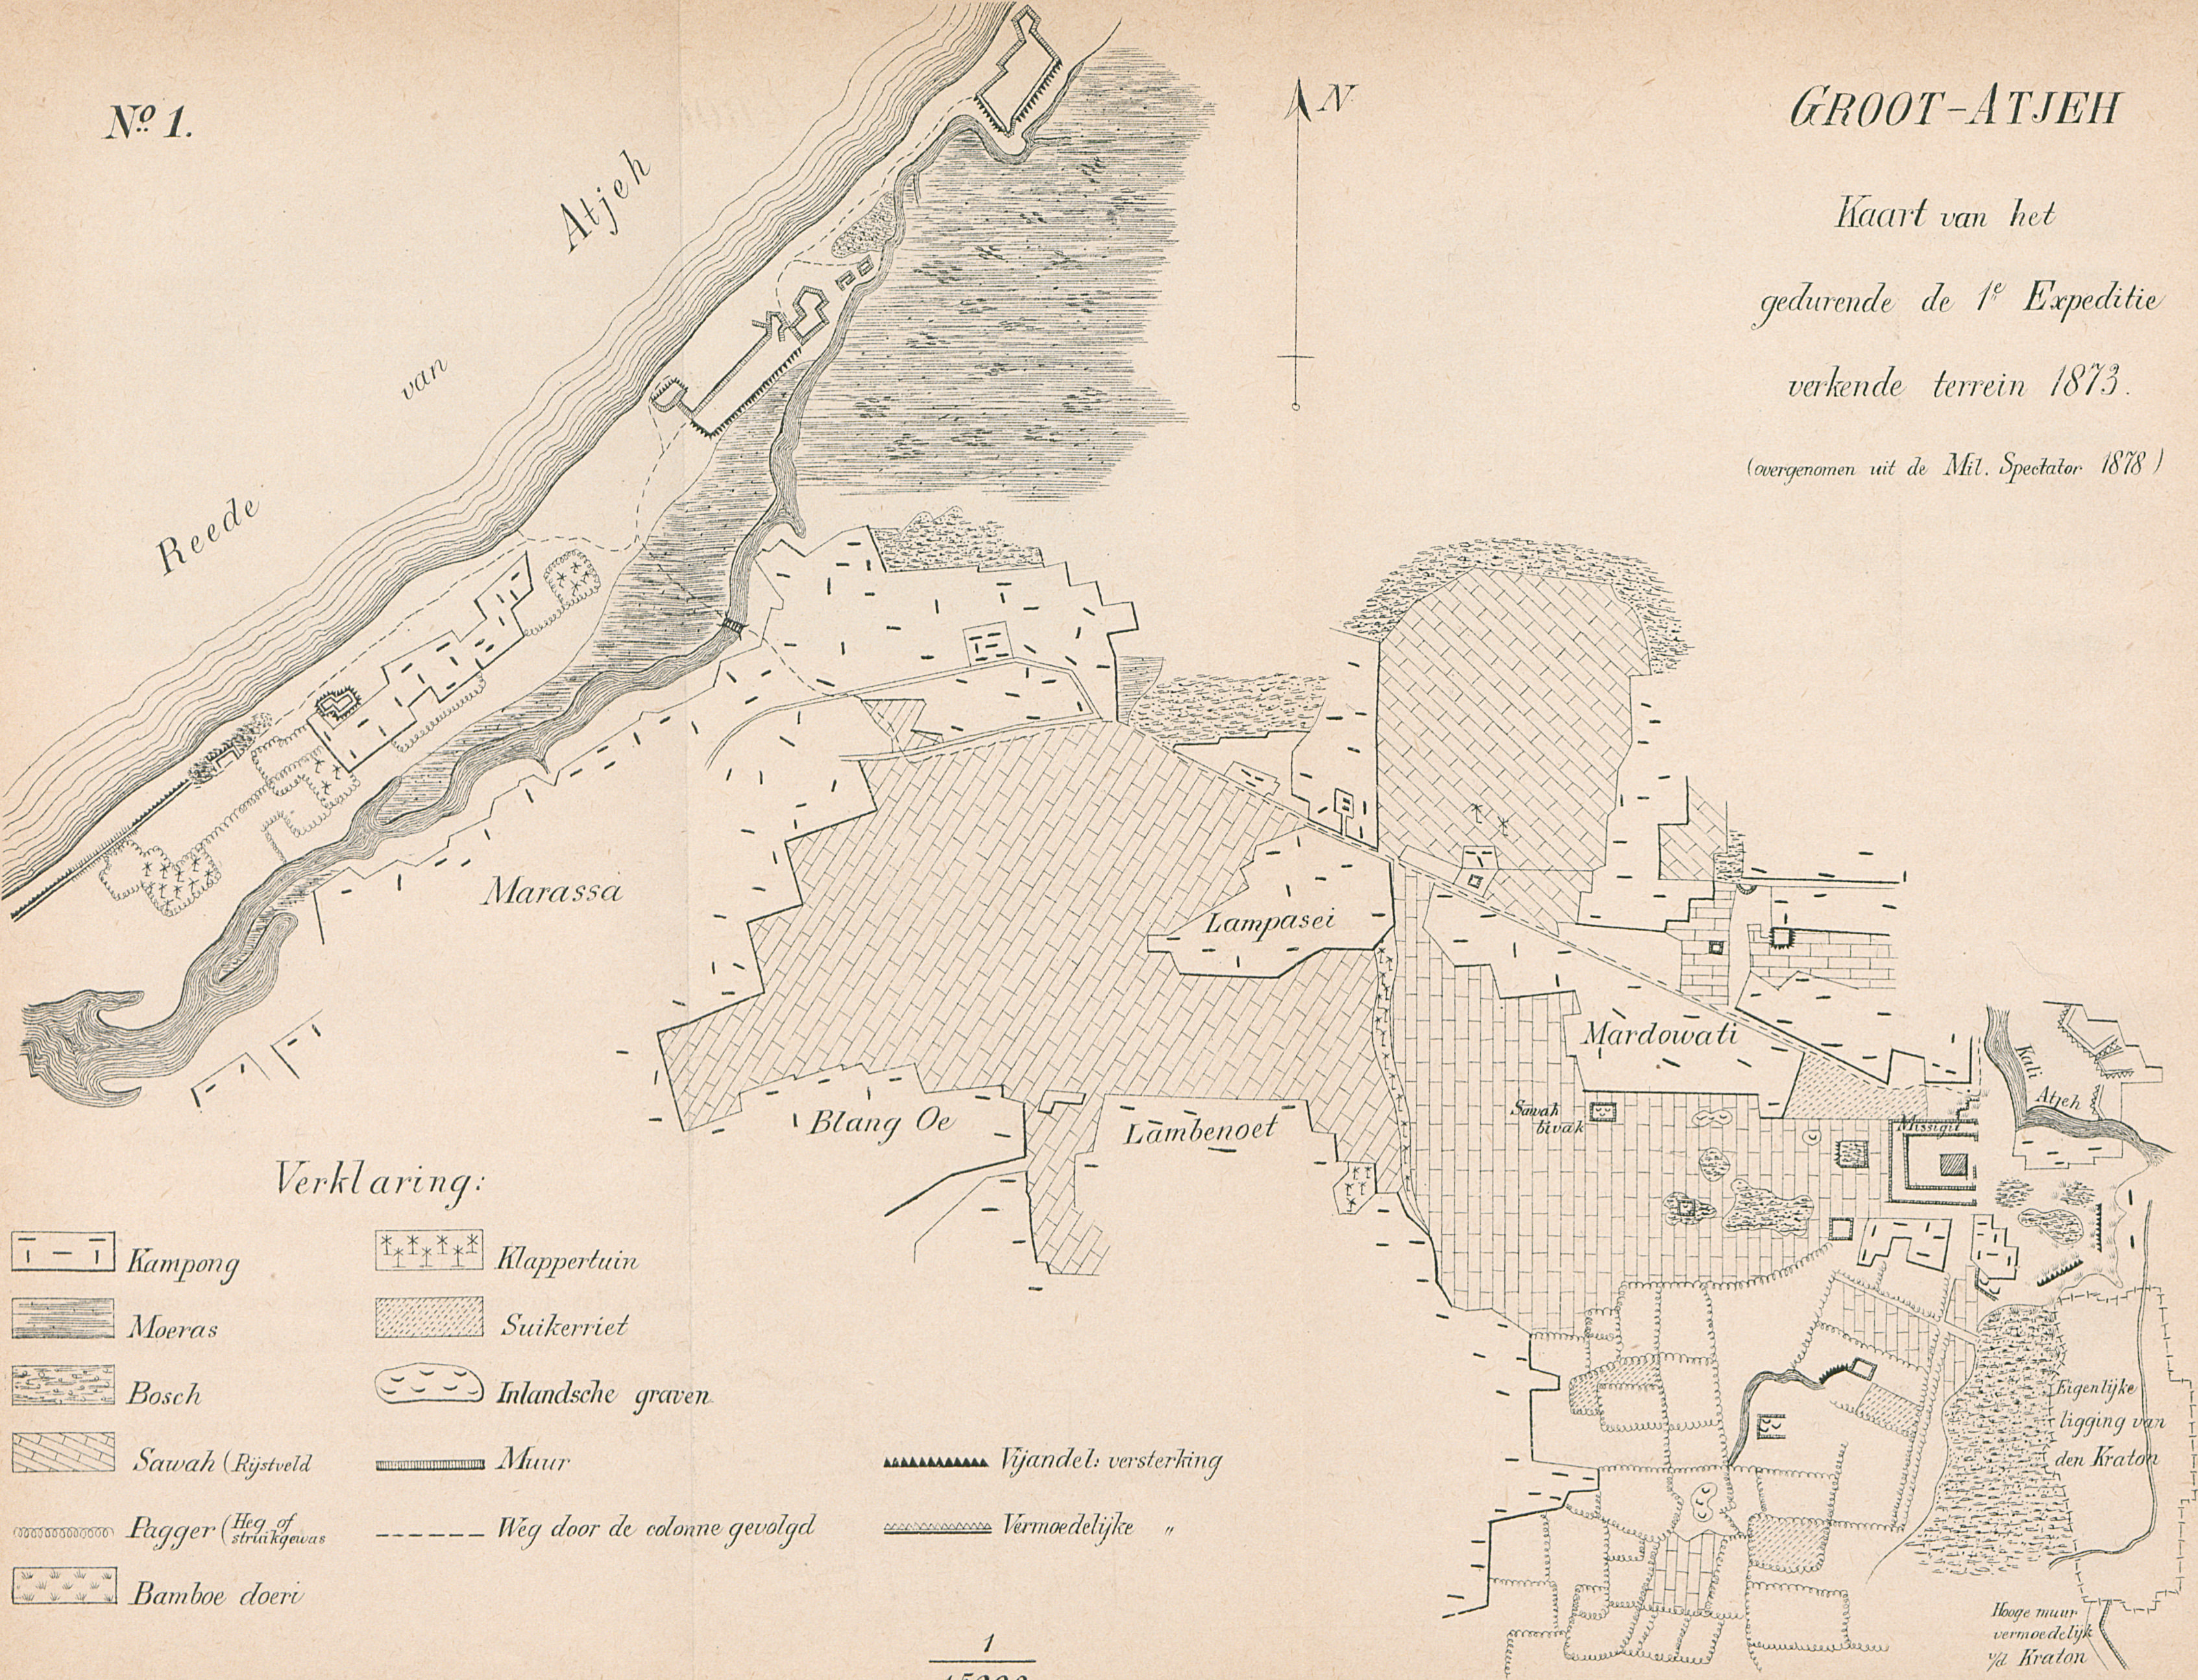 Nº 1.
GROOT-ATJEH
Kaart van het
gedurende de 1e Expeditie
verkende terrein 1873.
(overgenomen uit de Mil. Spectator 1878)
N
Reede van Atjeh
Marassa
Lampasei
Mardowati
Blang Oe
Lambenoet
Sawah
bivak
Missigit
Kali
Atjeh
Eigenlijke
ligging van
den Kraton
Hooge muur
vermoedelijk
v/d Kraton
Verklaring:
Kampong
Moeras
Bosch
Sawah (Rijstveld
Pagger (Heg of
struikgewas
Bamboe doeri
Klappertuin
Suikerriet
Inlandsche graven
Muur
Weg door de colonne gevolgd
Vijandel: versterking
Vermoedelijke "
1